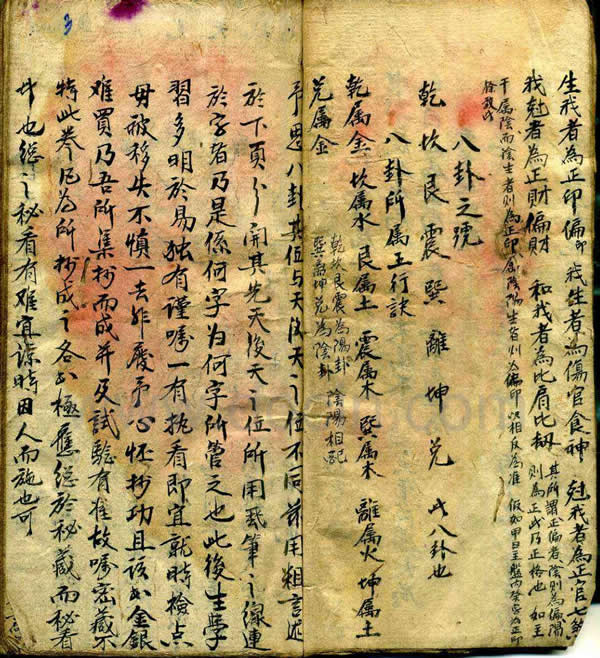 生我者為正印偏印 我生者為傷官食神 尅我者為正官七煞
我尅者為正財偏財 和我者為比肩比劫 其所謂正偏者陰則為偏陽
則為正此乃正格也 如生
干属陰而陰生者則為正印属陰陽生者則為偏印以相反為準 假如甲日主
八卦之號
乾 坎 艮 震 巽 離 坤 兌 此八卦也
八卦所属五行訣
乾属金 坎属水 艮属土 震属木 巽属木 離属火 坤属土
兌属金
乾坎艮震為陽卦
巽離坤兌為陰卦 陰陽相配
八卦其位与天後天之位不同 用粗言述
於下頁 開其先天後天之位所用 筆之線連
於字者乃是係何字為何字所管之也此後生學
習多明於易独有謹嘱一有执看即宜就時檢点
毋被移失不慎一去難 心怀抄功且该 金銀
难買乃吾所集抄而成并及試驗有准故嘱密藏不
特此拳凡為所抄成之各 極應總於秘藏而秘看
也總之秘看有难宜諒時因人而施也可
3